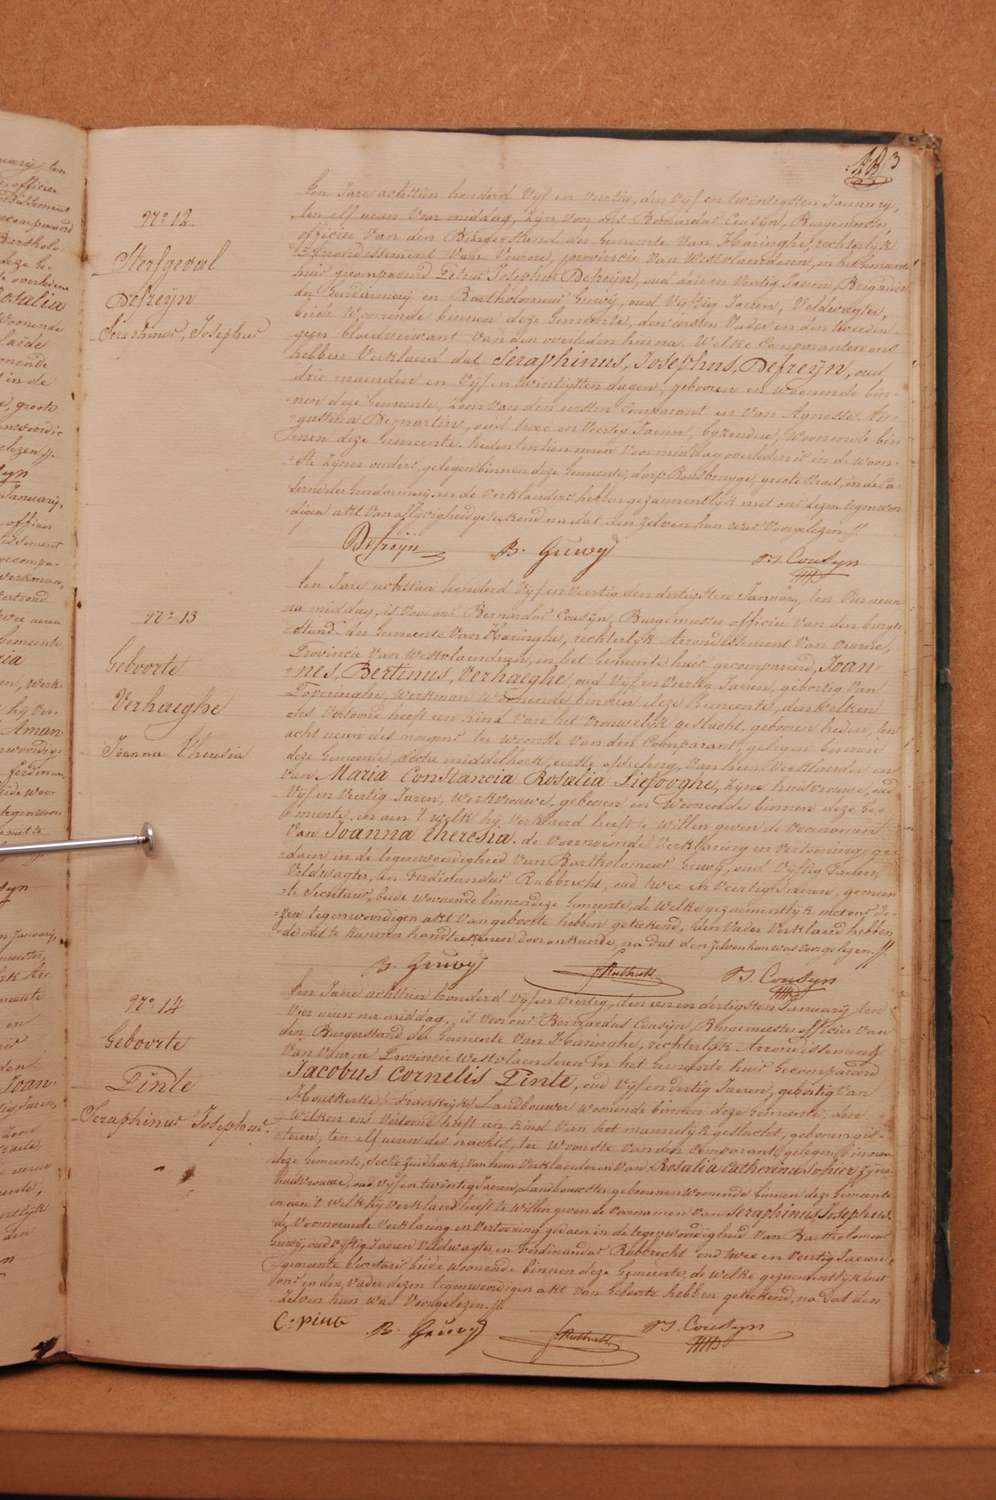 3
N.º 12
Sterfgeval
Defreijn
Seraphinus Josephus
Ten Jare achttien honderd vijf en veertig, den vijf en twintigsten Januarij,
ten elf uren voor middag, zijn voor ons Bernardus Cousijn, Burgemeester,
officier van den Burgerstand der Gemeente van Haringhe, rechterlijk
Arrondissement van Veurne, provincie van Westvlaenderen, in het Gemeente
huis gecompareerd Petrus Josephus Defreijn, oud een en Veertig Jaeren, Brigadier
der Gendarmerij en Bartholomeus Geuwij, oud Vijftig Jaeren, Veldwagter,
beide Woonende binnen deze Gemeente, den eersten Vader en den tweeden
geen bloedverwant van den overleden hierna. Welke Comparanten ons
hebben Verklaerd dat Seraphinus, Josephus, Defreijn, oud
drie maenden en Vijf en twintigsten dagen, geboren en woonende bin-
nen deze Gemeente, Zoon van den eersten Comparant en van
oud twee en Veertig Jaeren, bijzondere, Woonende bin-
nen deze Gemeente. heden ten tien uren Voor middag overleden is in de woon-
-ste Zijner ouders, gelegen binnen deze Gemeente, dorp Rousbrugge, groote straet, in de Ca-
serne der Gendarmerij, en de Verklaerders hebben gezamentlijk met ons dezen tegenwoor-
digen akt van aflijvigheid geteekend na dat den zelven hun was Voorgelezen ./.
Defreijn B. Geuwÿ B. Cousyn
N.º 13
Geboorte
Verhaeghe
Joanna Theresia
Ten Jare achttien honderd Vijf en Veertig den dertigsten Januarij, ten Vier uren
na middag, is Voor ons Bernardus Cousijn, Burgemeester officier van den burger-
-stand der Gemeente van Haringhe, rechterlijk Arrondissement van Veurne,
Provincie Van Westvlaenderen, in het Gemeente huis gecompareerd, Joan-
-nes, Bertinus, Verhaeghe, oud Vijf en Veertig Jaeren, gebortig Van
Poperinghe, Werkman Woonende binnen deze Gemeente, den welken
ons Vertoond heeft een kind van het vrouwelijk geslacht, geboren heden, ten
acht uren des morgens ter woonste van den Comparant, gelegen binnen
deze Gemeente, middelhoek, eerste afdeeling, van hem Verklaerder en
van Maria Constancia Rosalia Liefooghe, Zijne huisvrouwe, oud
Vijf en Veertig Jaeren, Werkvrouwe, geboren en Woonende binnen deze Ge-
-meente, en aen 't welk hij Verklaerd heeft te willen geven de voornamen
van Joanna Theresia. de Voornoemde Verklaring en vertooning ge-
-daen in de tegenwoordigheid van Bartholomeus Geuwij, oud Vijftig Jaeren,
Veldwagter, en Ferdinandus Rubbrecht, oud twee en Veertig Jaeren, gemeen-
-te Secretaris, beide woonende binnen deze Gemeente, de Welke gezamentlijk met ons de-
-zen tegenwoordigen akt Van geboorte hebben geteekend, den Vader Verklaerd hebben-
-de niet te kunnen handteekenen door onkunde, na dat den zelven hun was voorgelezen ./.
B. Geuwÿ F. Rubbrecht B. Cousyn
N.º 14
Geboorte
Pinte
Seraphinus Josephus
Ten Jare achttien honderd Vijf en Veertig, den een en dertigsten Januarij ten
Vier uren na middag, is voor ons Bernardus Cousijn, Burgemeester officier van
den Burgerstand der Gemeente van Haringhe, rechterlijk Arrondissement
Van Veurne Provincie Westvlaenderen in het Gemeente huis Gecompareerd
Jacobus Cornelis Pinte, oud Vijf en dertig Jaeren, gebortig van
Houtkerke (Frankrijk) Landbouwer woonende binnen deze Gemeente, den
Welken ons Vertoond heeft een kind Van het mannelijk geslacht, geboren gis-
-teren, ten elf uren des nachts, ter Woonste van den Comparant, gelegen binnen
deze Gemeente, Sectie Zuidhoek, van hem Verklaerder en Van Rosalia Catherina Sohier Zijne
huisvrouwe, oud vijf en twintig Jaeren, Landbouwster, geboren en Woonende binnen deze Gemeente
en aen 't welk hij Verklaerd heeft te willen geven de Voornamen van Seraphinus, Josephus
de Voornoemde Verklaring en Vertooning gedaen in de tegenwoordigheid Van Bartholomeus
Geuwij, oud Vijftig Jaeren Veldwagter, en Ferdinandus Rubbrecht oud twee en Veertig Jaeren,
gemeente Secretaris beide woonende binnen deze Gemeente, de welke gezamentlijk met
ons en den Vader dezen tegenwoordigen akt van Geboorte hebben geteekend, na dat den
Zelven hun was Voorgelezen ./.
C. pinte B. Geuwÿ F. Rubbrecht B. Cousyn